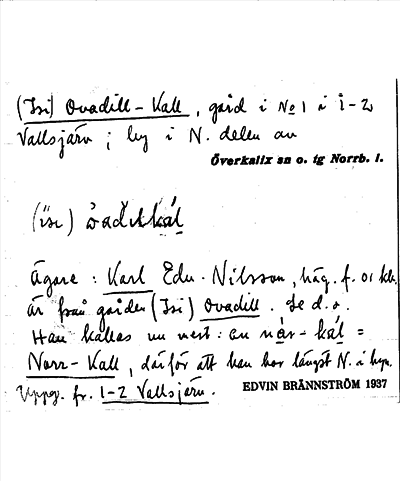 (Isi) Ovadill-Kall, gård i No 1 i 1-2
Vallsjärv; by i N. delen av
Överkalix sn o. tg Norrb. l.
(isi)
Ägare: Karl Edv. Nilsson, häg. f. 01 här,
är från gården (Isi) Ovadill. Se d.o.
Han kallas nu mest: an når-kal =
Norr-Kall, därför att han bor längst N. i byn.
Uppg. fr. 1-2 Vallsjärv.
EDVIN BRÄNNSTRÖM 1937